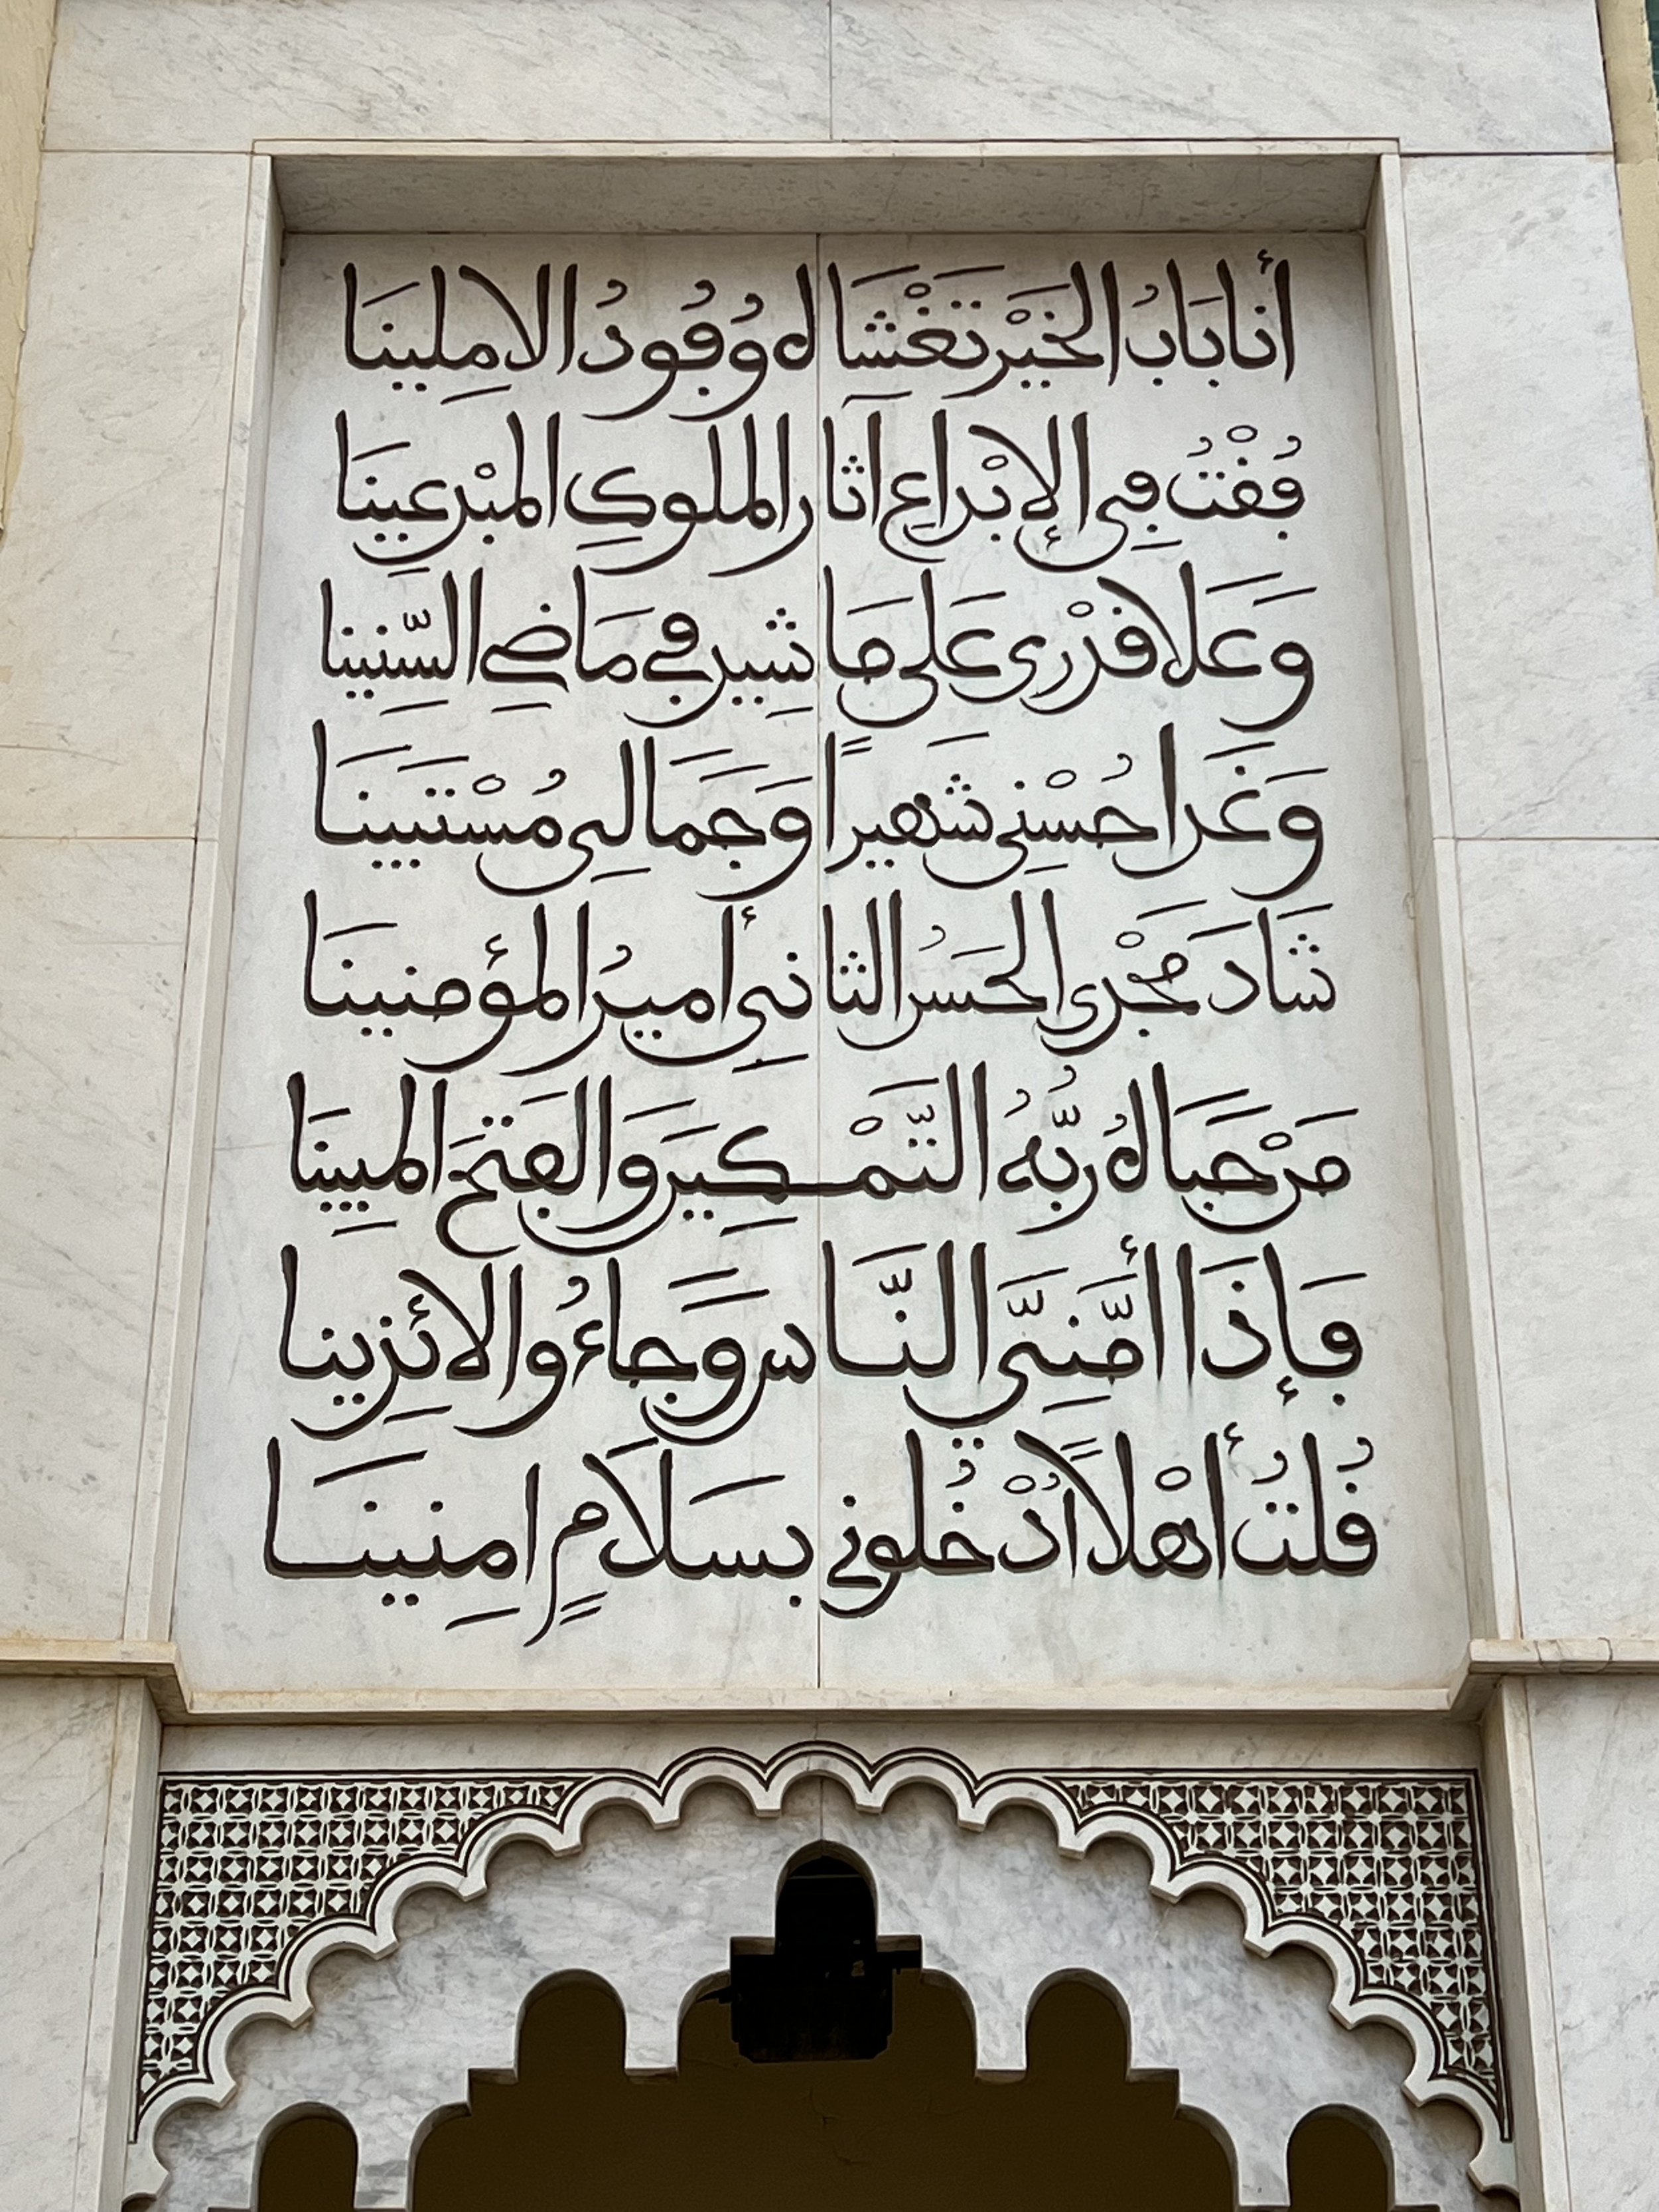 أنا بَابُ الخَيْرِ تَغْشَا له وُفُودُ الامِلينَا
فُقْتُ فِي الإبْداعِ آثار الملوكِ المبْدعينَا
وَعَلَا قَدْرِى عَلى مَا شِيد في مَاضِي السِّنينا
وَغَدا حُسْنِي شَهيراً وَجَمَالِي مُسْتَبينَا
شَادَ مَجْدِي الحَسَنُ الثانِي أميرُ المؤمنينَا
مَرْحَبَا لهُ رَبُّهُ التَّمْكِينَ وَالفَتْحَ المُبِينَا
فَإذَا أمَّنِيَّ النَّاس وَجَاءُوا لائِزِينا
قُلتُ أهْلاً اُدْخُلُوني بسَلَامٍ امِنينَا